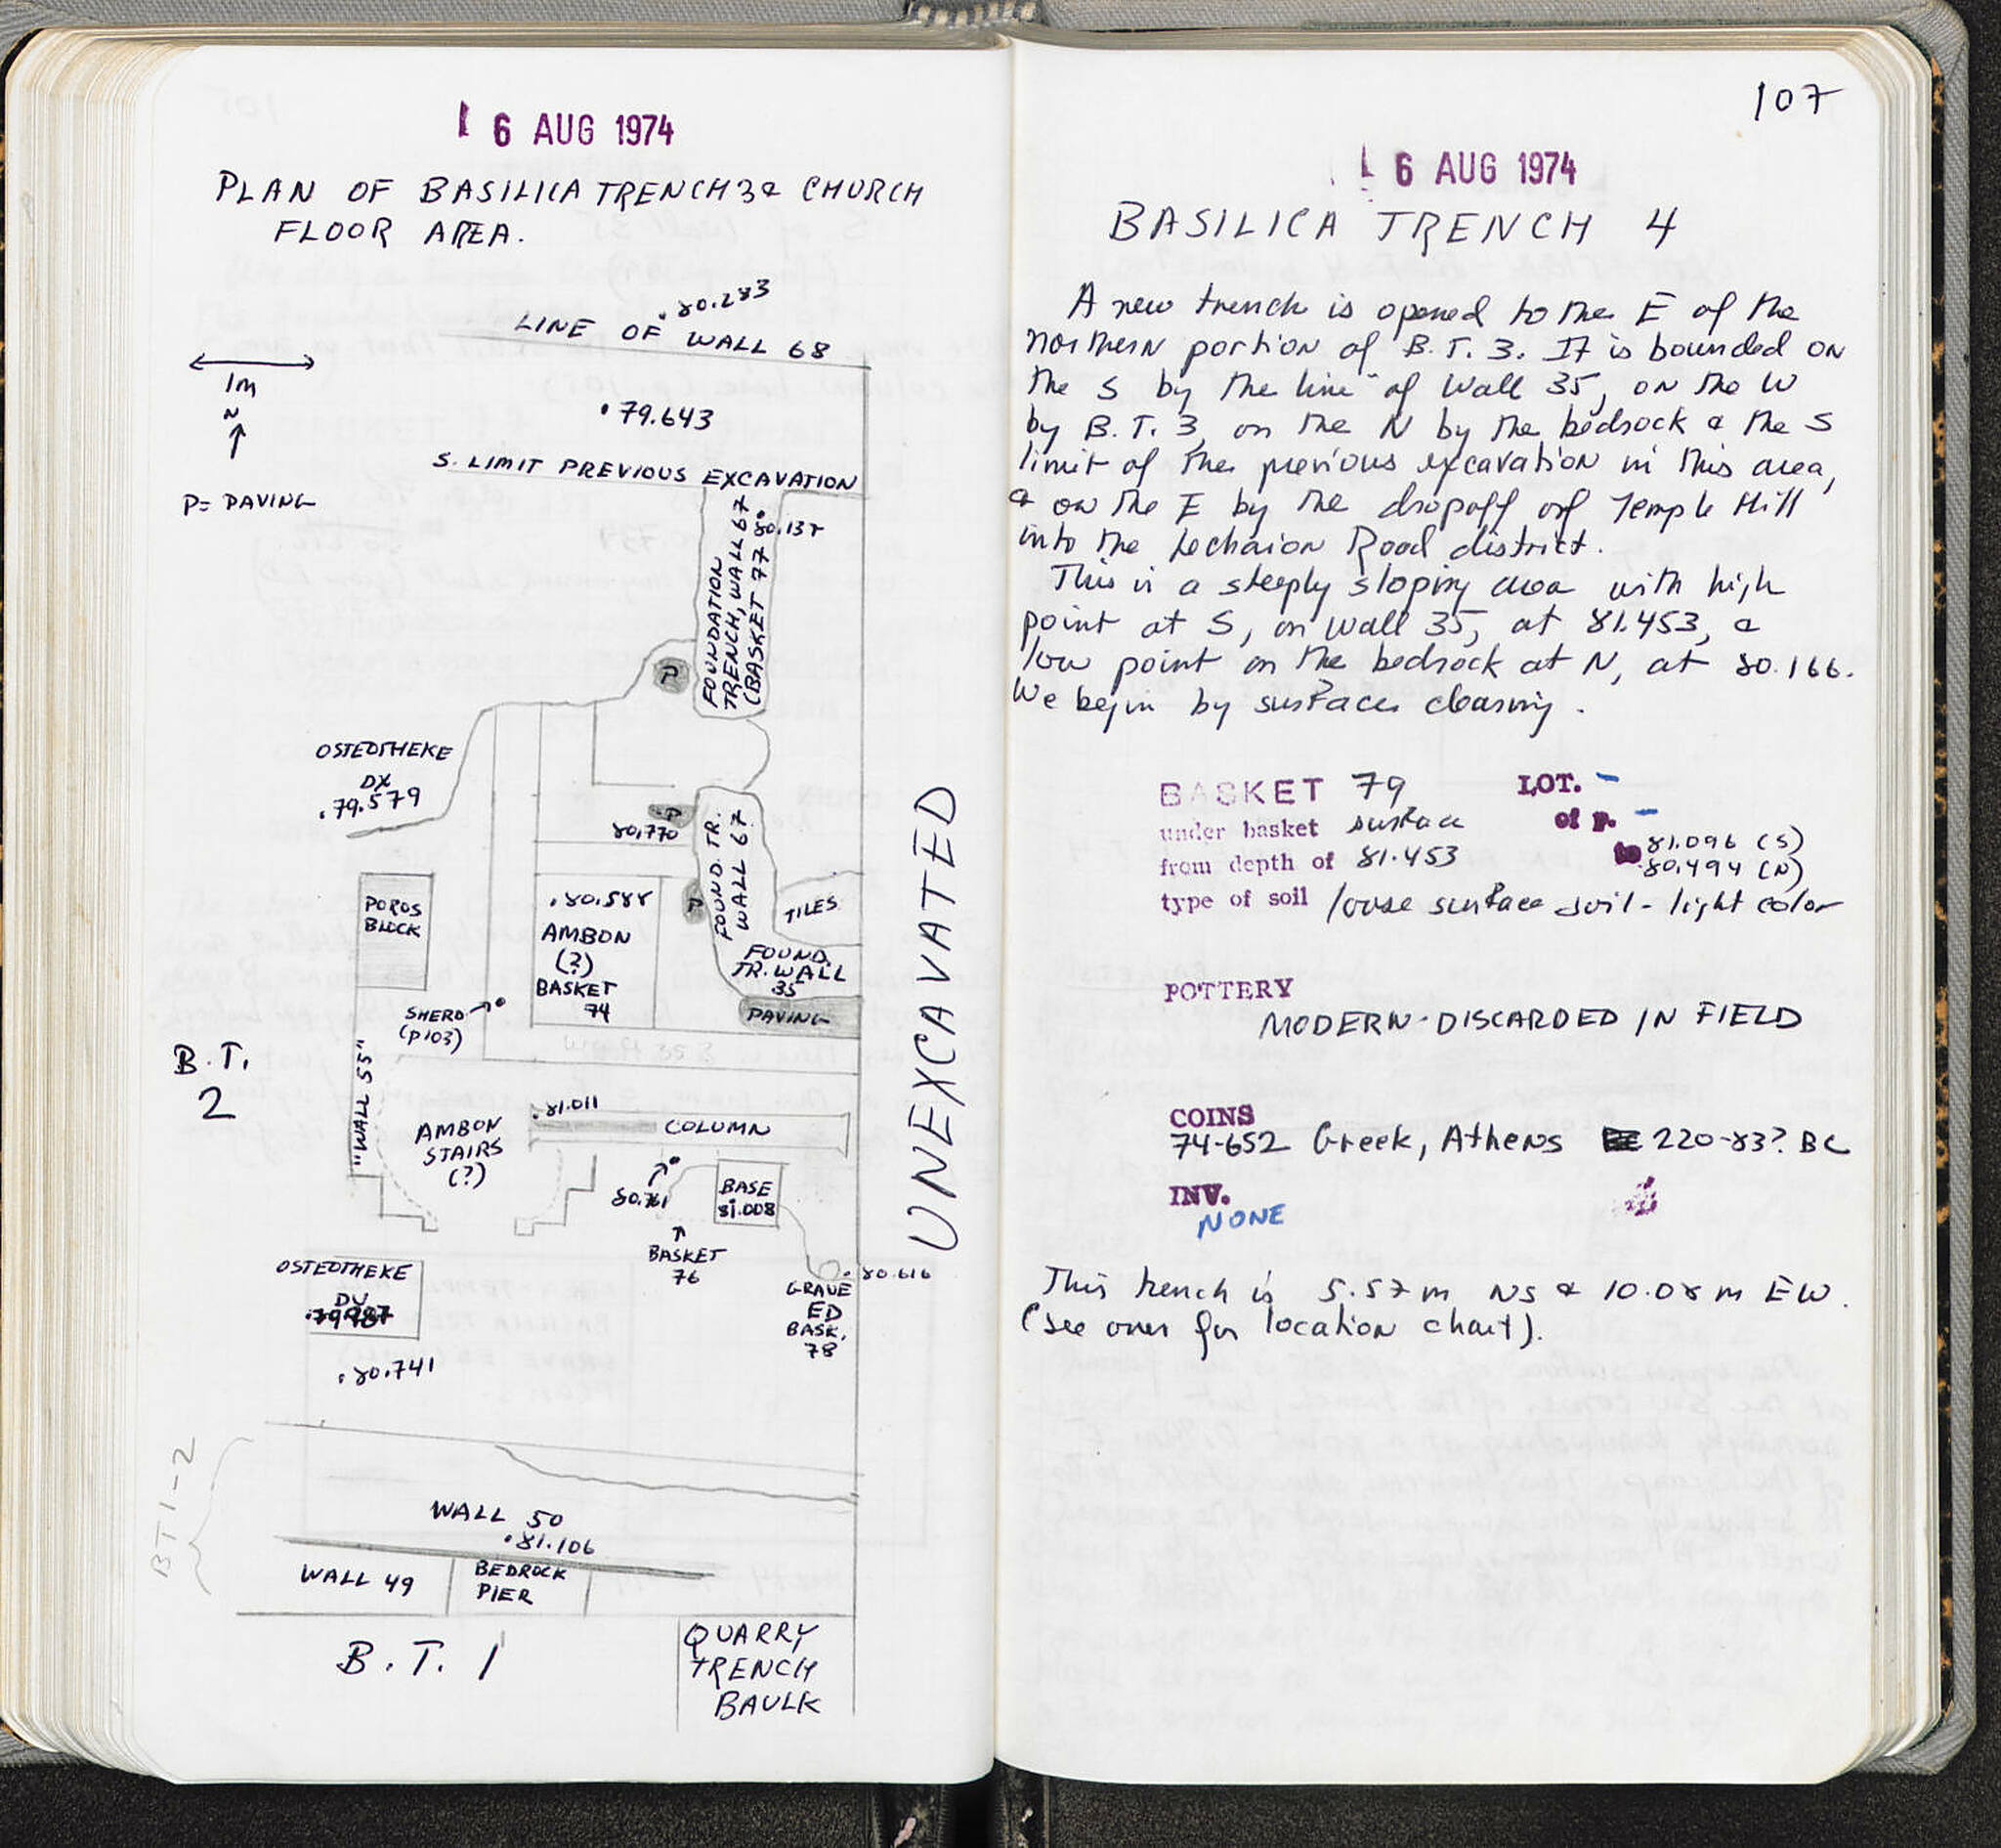 16 AUG 1974
PLAN OF BASILICA TRENCH 3 & CHURCH
FLOOR AREA.
.80.283
LINE OF WALL 68
1m
N
.79.643
S. LIMIT PREVIOUS EXCAVATION
P= PAVING
FOUNDATION
TRENCH, WALL 67
(BASKET 77
P
OSTEOTHEKE
DX
.79.579
P
80.770
FOUND. TR.
WALL 67
POROS
BLOCK
.80.588
AMBON
(?)
BASKET
74
P
TILES
FOUND.
TR. WALL
35
PAVING
SHERD
(p103)
B.T.
2
"WALL 55"
.81.011
COLUMN
AMBON
STAIRS
(?)
BASE
81.008
BASKET
76
UNEXCAVATED
OSTEOTHEKE
DV
.80.616
GRAVE
ED
BASK.
78
.80.741
BT1-2
WALL 50
.81.106
WALL 49
BEDROCK
PIER
B.T. 1
QUARRY
TRENCH
BAULK
107
16 AUG 1974
BASILICA TRENCH 4
A new trench is opened to the E of the
northern portion of B.T. 3. It is bounded on
the S by the line of Wall 35, on the W
by B.T. 3, on the N by the bedrock & the S
limit of the previous excavation in this area,
& on the E by the dropoff of Temple Hill
into the Lechaion Road district.
This is a steeply sloping area with high
point at S, on wall 35, at 81.453, &
low point on the bedrock at N, at 80.166.
We begin by surface cleaning.
BASKET 79 LOT. -
under basket surface of p. -
from depth of 81.453 to 81.096 (S)
80.494 (N)
type of soil loose surface soil - light color
POTTERY
MODERN - DISCARDED IN FIELD
COINS
74-652 Greek, Athens 220-83? BC
INV.
NONE
This trench is 5.57m NS & 10.08m EW.
(see over for location chart).